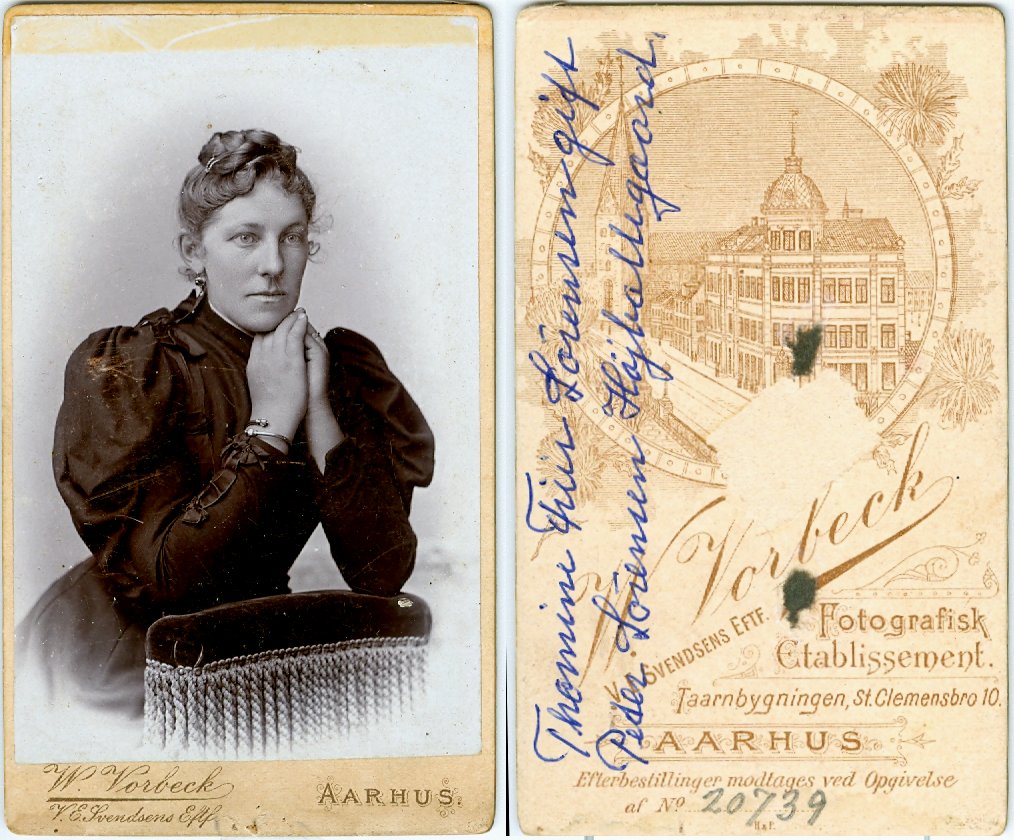 W. Vorbeck
V. E. Svendsens Eftf.
AARHUS.
Thomine Fiir Sörensen gift
Peder Sörensen Höjballegaard.
W. Vorbeck
V. E. SVENDSENS EFTF.
Fotografisk
Etablissement.
Taarnbygningen, St. Clemensbro 10.
AARHUS
Efterbestillinger modtages ved Opgivelse
af No 20739